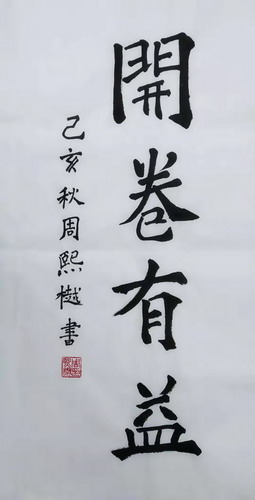 開卷有益
己亥秋周熙樾書